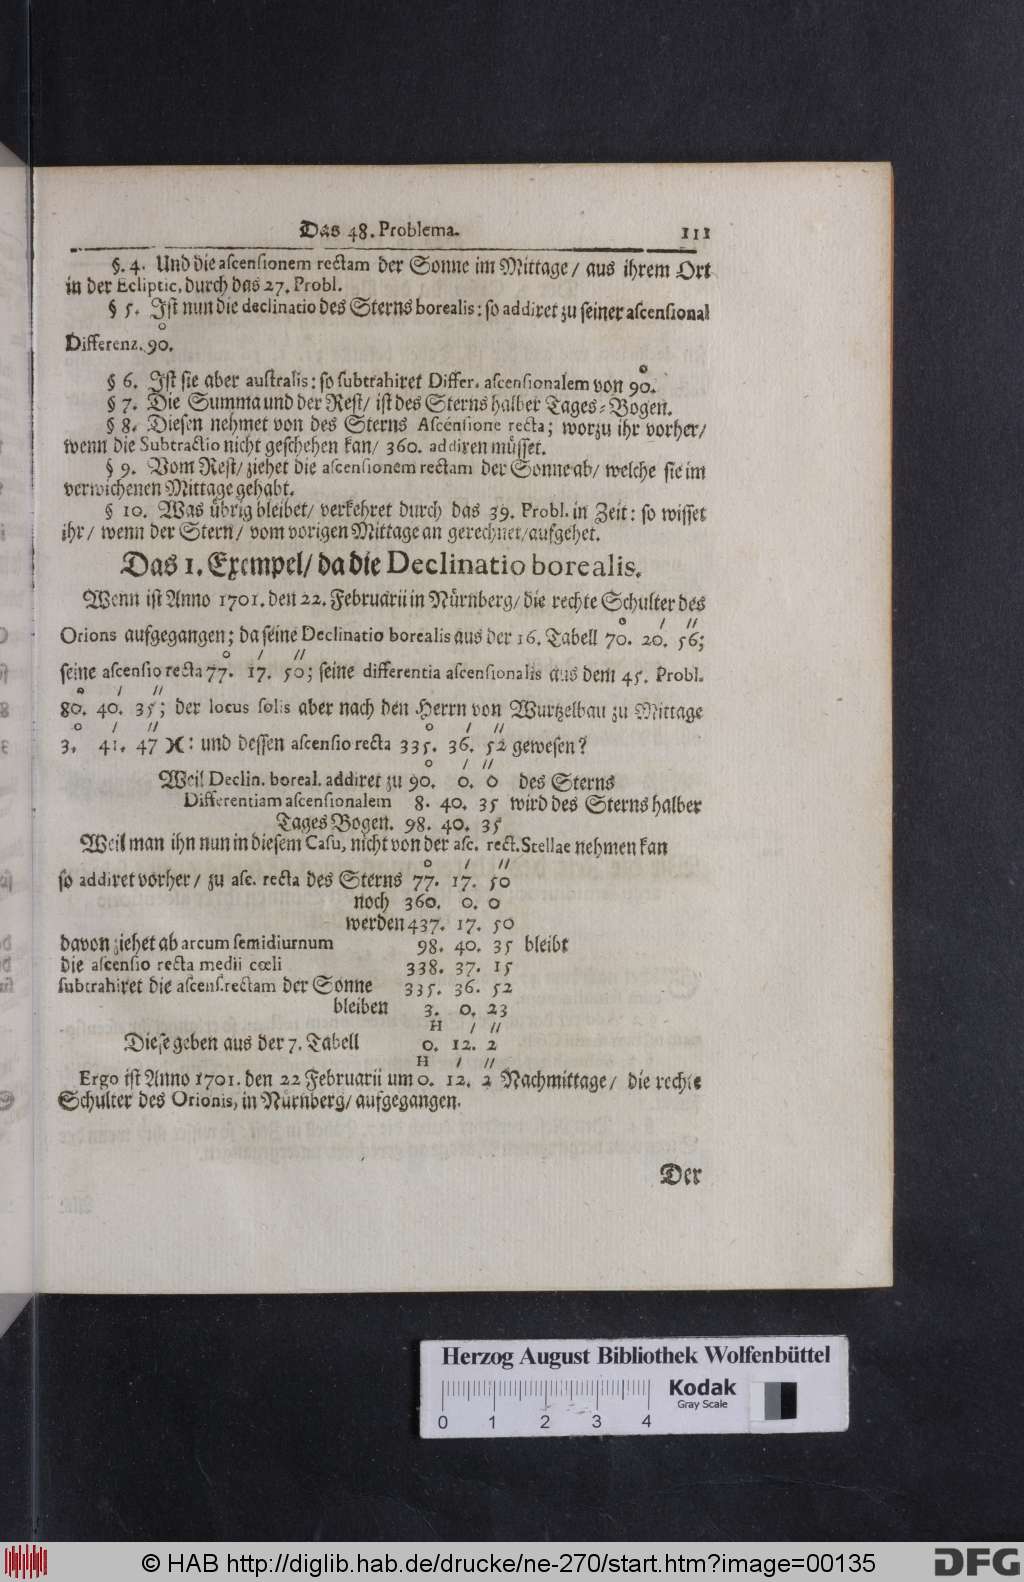 Das 48. Problema. 111
§. 4. Und die ascensionem rectam der Sonne im Mittage / aus ihrem Ort
in der Ecliptic, durch das 27. Probl.
§ 5. Ist nun die declinatio des Sterns borealis: so addiret zu seiner ascensional
o
Differenz. 90.
o
§ 6. Ist sie aber australis: so subtrahiret Differ. ascensionalem von 90.
§ 7. Die Summa und der Rest / ist des Sterns halber Tages-Bogen.
§ 8. Diesen nehmet von des Sterns Ascensione recta; worzu ihr vorher /
wenn die Subtractio nicht geschehen kan / 360. addiren müsset.
§ 9. Vom Rest / ziehet die ascensionem rectam der Sonne ab / welche sie im
verwichenen Mittage gehabt.
§ 10. Was übrig bleibet / verkehret durch das 39. Probl. in Zeit: so wisset
ihr / wenn der Stern / vom vorigen Mittage an gerechnet / aufgehet.
Das 1. Exempel / da die Declinatio borealis.
Wenn ist Anno 1701. den 22. Februarii in Nürnberg / die rechte Schulter des
o / //
Orions aufgegangen; da seine Declinatio borealis aus der 16. Tabell 70. 20. 56;
o / //
seine ascensio recta 77. 17. 50; seine differentia ascensionalis aus dem 45. Probl.
o / //
80. 40. 35; der locus solis aber nach den Herrn von Wurtzelbau zu Mittage
o / // o / //
3. 41. 47 ♓: und dessen ascensio recta 335. 36. 52 gewesen?
o / //
Weil Declin. boreal. addiret zu 90. 0. 0 des Sterns
Differentiam ascensionalem 8. 40. 35 wird des Sterns halber
Tages Bogen. 98. 40. 35
Weil man ihn nun in diesem Casu, nicht von der asc. rect. Stellae nehmen kan
o / //
so addiret vorher / zu asc. recta des Sterns 77. 17. 50
noch 360. 0. 0
werden 437. 17. 50
davon ziehet ab arcum semidiurnum 98. 40. 35 bleibt
die ascensio recta medii cœli 338. 37. 15
subtrahiret die ascens. rectam der Sonne 335. 36. 52
bleiben 3. 0. 23
H / //
Diese geben aus der 7. Tabell 0. 12. 2
H / //
Ergo ist Anno 1701. den 22 Februarii um 0. 12. 2 Nachmittage / die rechte
Schulter des Orionis, in Nürnberg / aufgegangen.
Der
Herzog August Bibliothek Wolfenbüttel
Kodak
Gray Scale
0 1 2 3 4
© HAB http://diglib.hab.de/drucke/ne-270/start.htm?image=00135
DFG